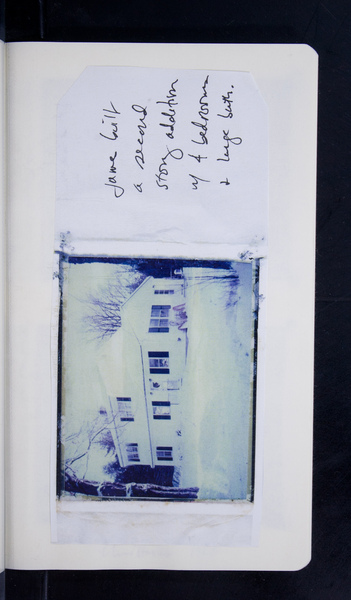 Jame built
a second
story addition
w/ 4 bedrooms
& large bath.